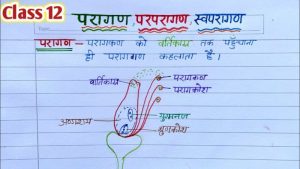 Class 12
परागण, परपरागण, स्वपरागण
परागण – परागकण को वर्तिकाग्र तक पहुँचाना
ही परागगण कहलाता है।
वर्तिकाग्र
परागकण
परागकोश
अण्डाशय
भ्रूणकोश